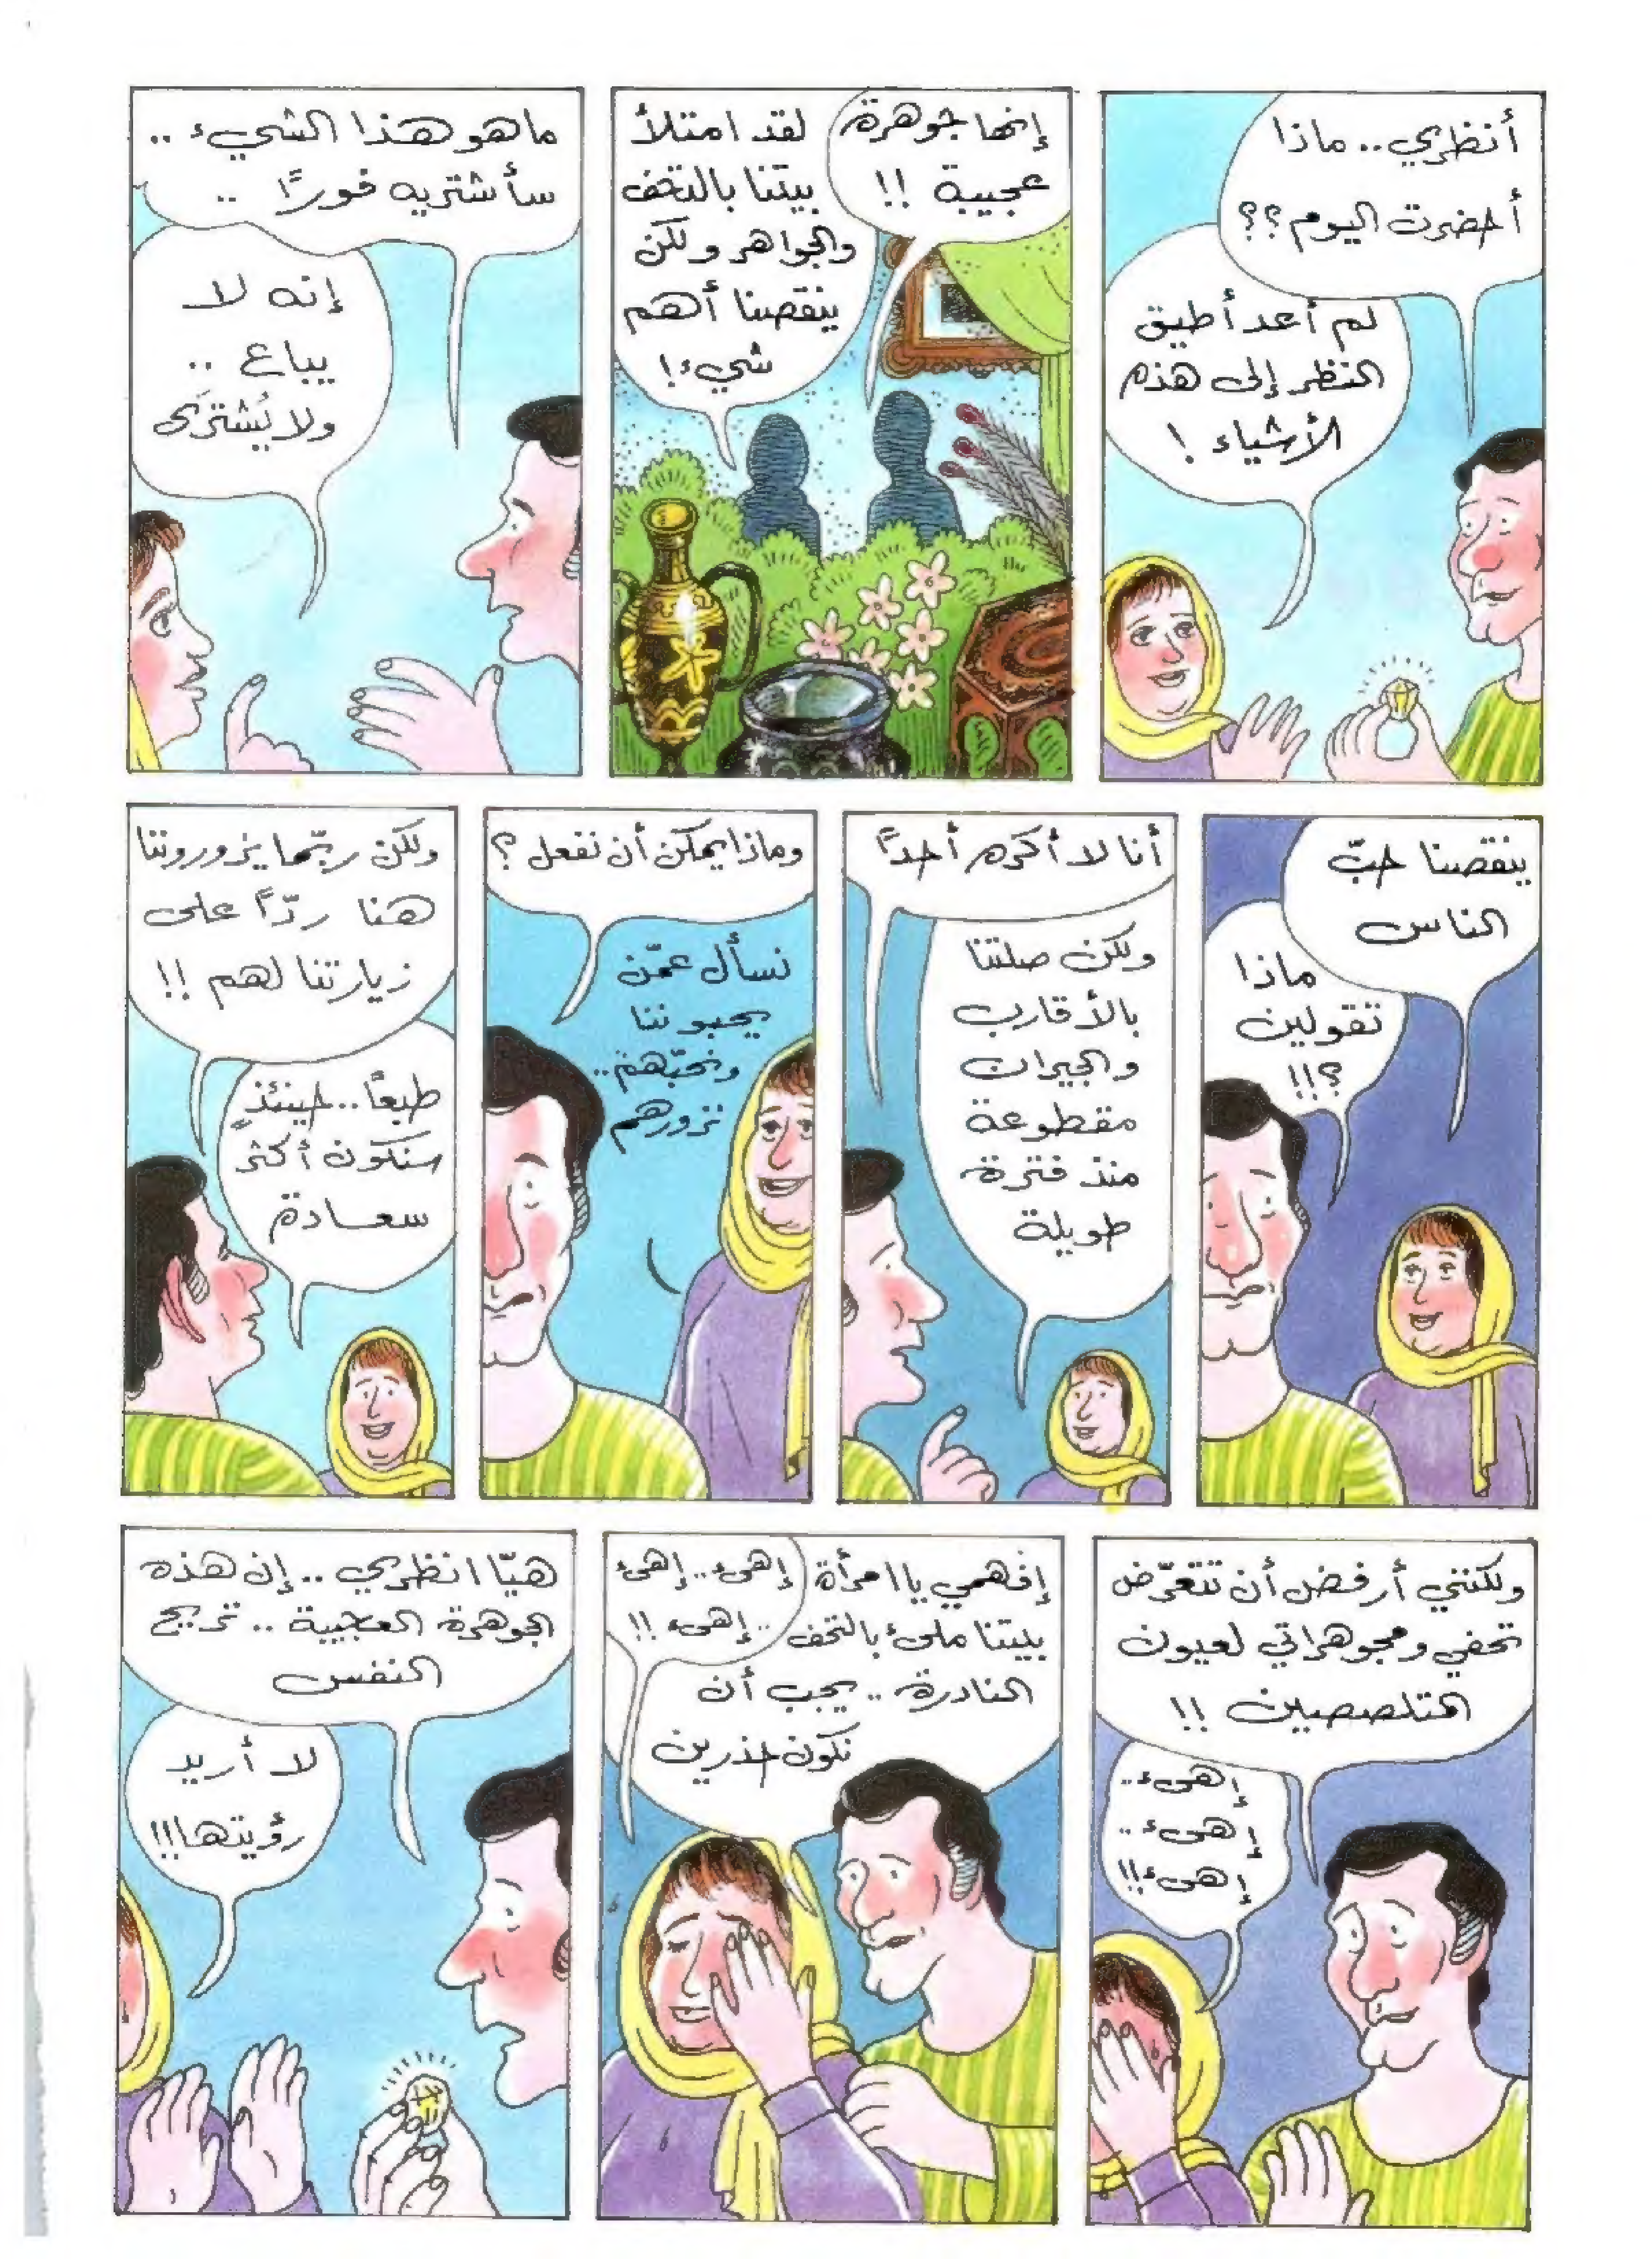 أنظري.. ماذا
أحضرت اليوم؟؟
لم أعد أطيق
النظر إلى هذه
الأشياء !
إنها جوهرة
عجيبة !!
لقد امتلأ
بيتنا بالتحف
والجواهر ولكن
ينقصنا أهم
شيء !
ما هو هذا الشيء ..
سأشتريه فورًا ..
إنه لا
يباع ..
ولا يُشترَى
ينقصنا حبّ
الناس
ماذا
تقولين
؟!!
أنا لا أكره أحدًا
ولكن صلتنا
بالأقارب
والجيران
مقطوعة
منذ فترة
طويلة
وماذا يمكن أن نفعل ؟
نسأل عمّن
يحبوننا
ونحبّهم..
نزورهم
ولكن ربّما يزوروننا
هنا ردًّا على
زيارتنا لهم !!
طبعًا.. حينئذٍ
سنكون أكثر
سعادة
ولكنني أرفض أن تتعرّض
تحفي ومجوهراتي لعيون
المتلصصين !!
إهىء..
إهىء..
إهىء!!
إفهمي يا امرأة
بيتنا ملىء بالتحف
النادرة .. يجب أن
نكون حذرين
إهىء.. إهىء
.. إهىء !!
هيّا انظري .. إن هذه
الجوهرة العجيبة .. تريح
النفس
لا أريد
رؤيتها!!!